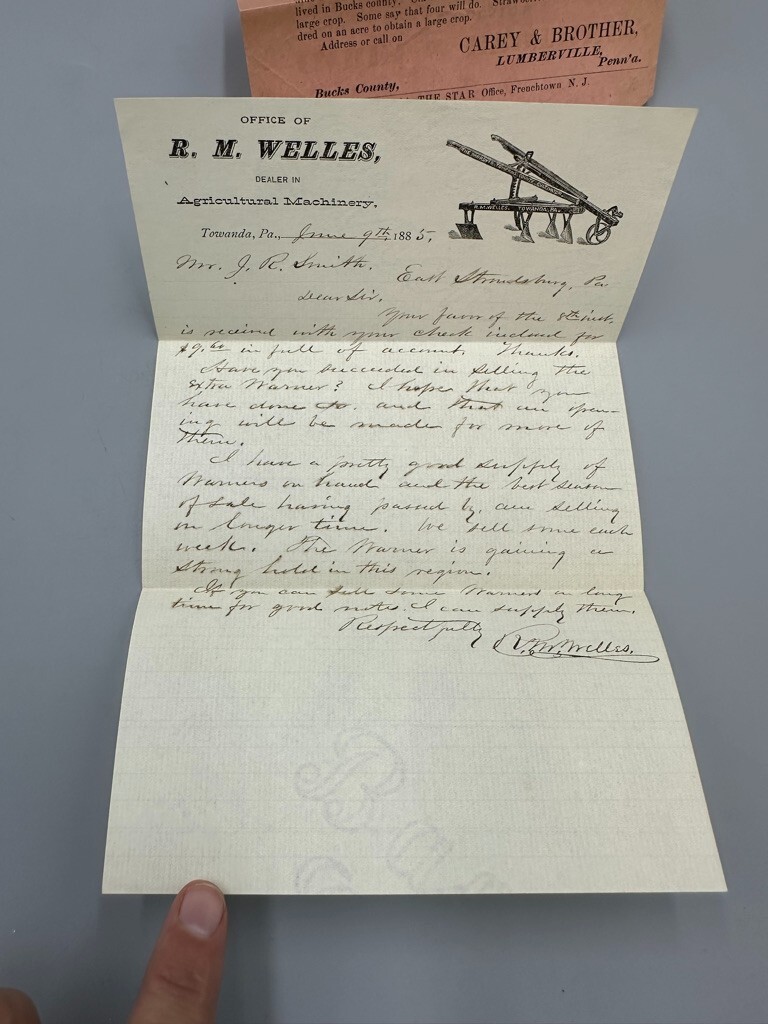 lived in Bucks county.
large crop. Some say that four will do.
dred on an acre to obtain a large crop.
Address or call on
CAREY & BROTHER,
LUMBERVILLE,
Bucks County, Penn'a.
THE STAR Office, Frenchtown N. J.
OFFICE OF
R. M. WELLES,
DEALER IN
Agricultural Machinery.
R.M. WELLES, TOWANDA, PA.
Towanda, Pa., June 9th, 1885.
Mr. J. R. Smith.
East Stroudsburg, Pa
Dear Sir,
Your favor of the 8th inst.
is received with your check inclosed for
$9.60 in full of account. Thanks.
Have you succeeded in selling the
extra Warner? I hope that you
have done so. and that an open-
ing will be made for more of
them.
I have a pretty good supply of
Warners on hand and the best season
of sale having passed by, am selling
on longer time. We sell some each
week. The Warner is gaining a
strong hold in this region.
If you can sell some Warners on long
time for good notes I can supply them.
Respectfully
R. M. Welles.